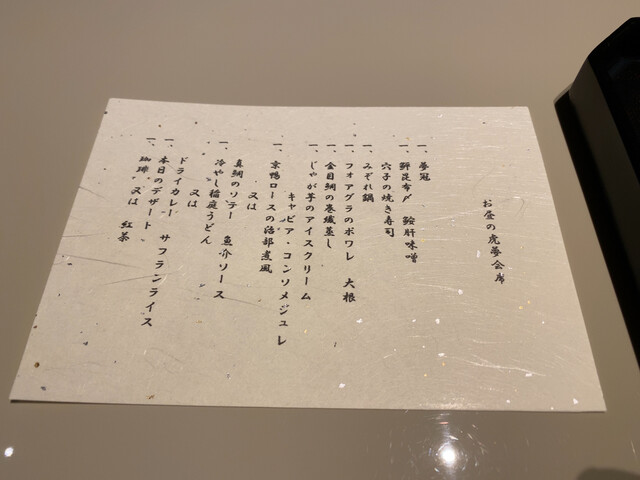 お昼の虎夢会席
一、夢冠
一、鮃昆布〆　鮟肝味噌
穴子の焼き寿司
一、みぞれ鍋
一、フォアグラのポワレ　大根
一、金目鯛の巻繊蒸し
一、じゃが芋のアイスクリーム
キャビア・コンソメジュレ
一、京鴨ロースの治部煮風
又は
真鯛のソテー　魚介ソース
一、冷やし稲庭うどん
又は
ドライカレー　サフランライス
一、本日のデザート
一、珈琲　又は　紅茶